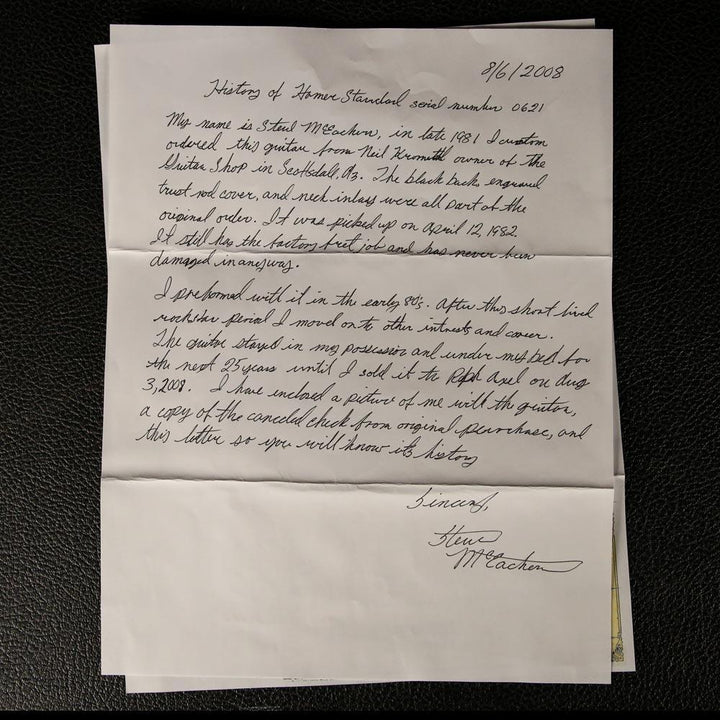 8/6/2008
History of Hamer Standard serial number 0621
My name is Steve McEachern, in late 1981 I custom
ordered this guitar from Neil owner of the
Guitar Shop in Scottsdale, Az. The black back, engraved
trust rod cover, and neck inlays were all part of the
original order. It was picked up on April 12, 1982
It still has the factory fret job and has never been
damaged in anyway.
I preformed with it in the early 80's. After this short lived
rockstar period I moved on to other intrests and career.
The guitar stayed in my possession and under my bed for
the next 25 years until I sold it to Axel on Aug
3, 2008. I have enclosed a picture of me with the guitar,
a copy of the canceled check from original purchase, and
this letter so you will know its history
Sincerely,
Steve
McEachern